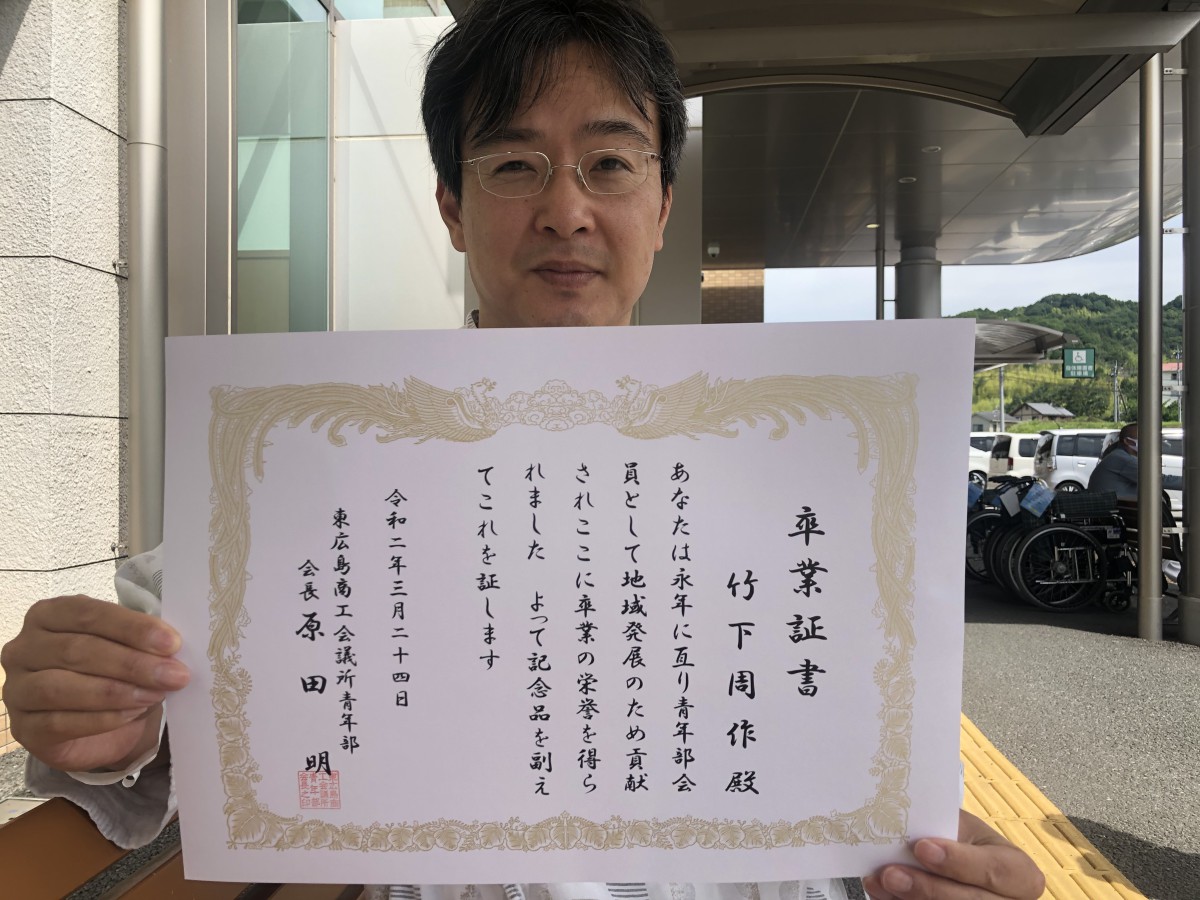 卒業証書
竹下周作殿
あなたは永年に亙り青年部会
員として地域発展のため貢献
されここに卒業の栄誉を得ら
れました　よって記念品を副え
てこれを証します
令和二年三月二十四日
東広島商工会議所青年部
会長 原田 明